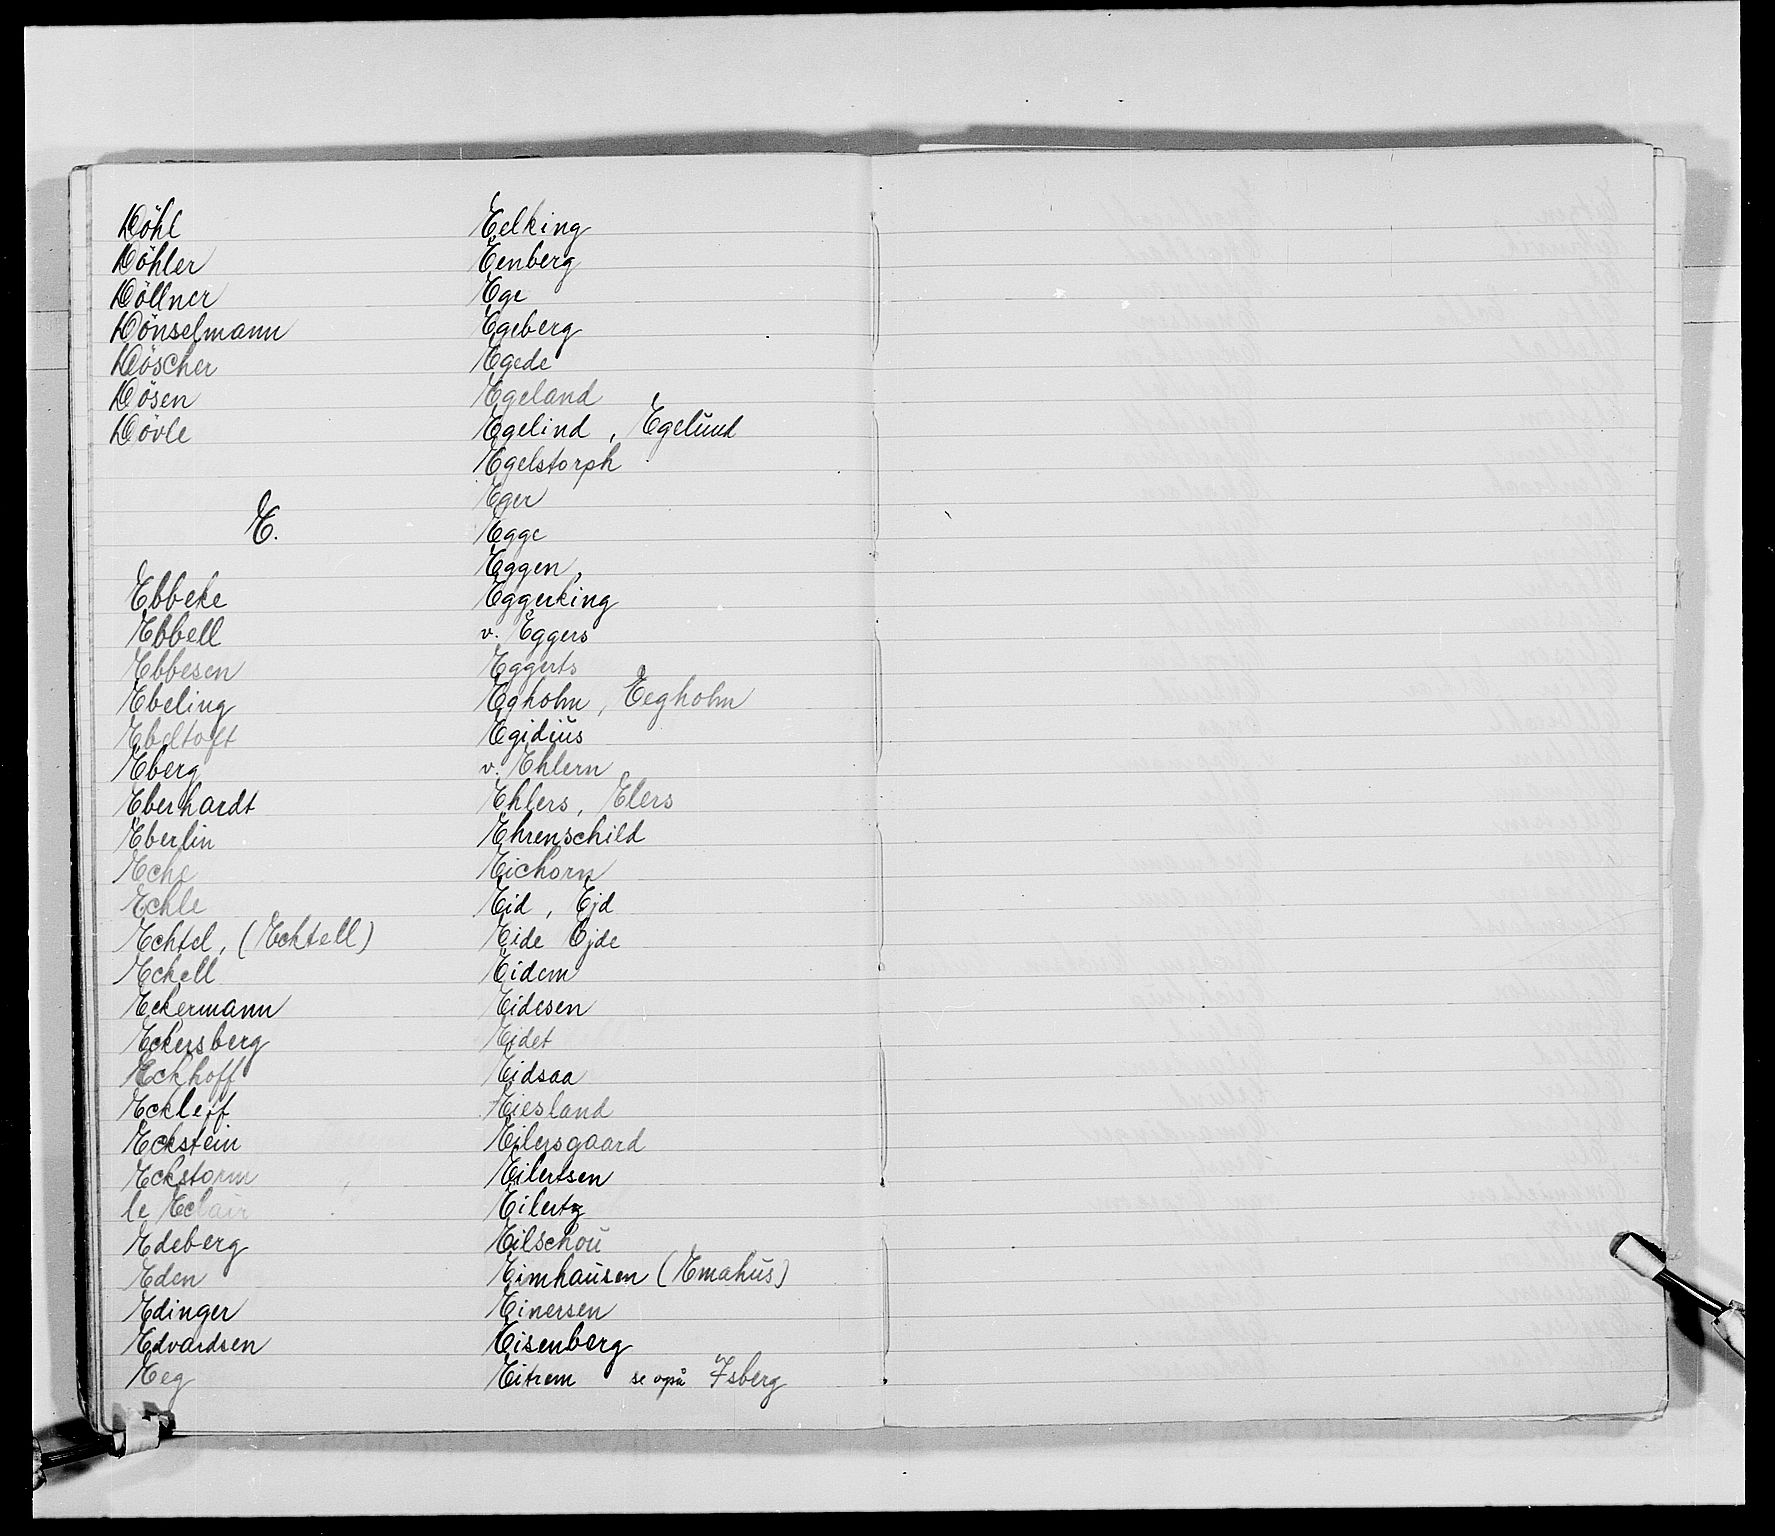 Döhl
Döhler
Döllner
Dönselmann
Döscher
Dösen
Dövle
E.
Ebbeke
Ebbell
Ebbesen
Ebeling
Ebeltoft
Eberg
Eberhardt
Eberlin
Eche
Echle
Echtel, (Echtell)
Eckell
Eckermann
Eckersberg
Eckhoff
Eckleff
Eckstein
Eckstorm
le Eclair
Edeberg
Eden
Edinger
Edvardsen
Eeg
Eelking
Eenberg
Ege
Egeberg
Egede
Egeland
Egelind, Egelund
Egelstorph
Eger
Egge
Eggen,
Eggerking
v. Eggers
Eggerts
Egholm, Eegholm
Egidius
v. Ehlern
Ehlers, Elers
Ehrenschild
Eichorn
Eid, Ejd
Eide Ejde
Eidem
Eidesen
Eidet
Eidsaa
Eiesland
Eilersgaard
Eilertsen
Eilertz
Eilschou
Eimhausen (Emahus)
Einersen
Eisenberg
Eitrem se også Isberg